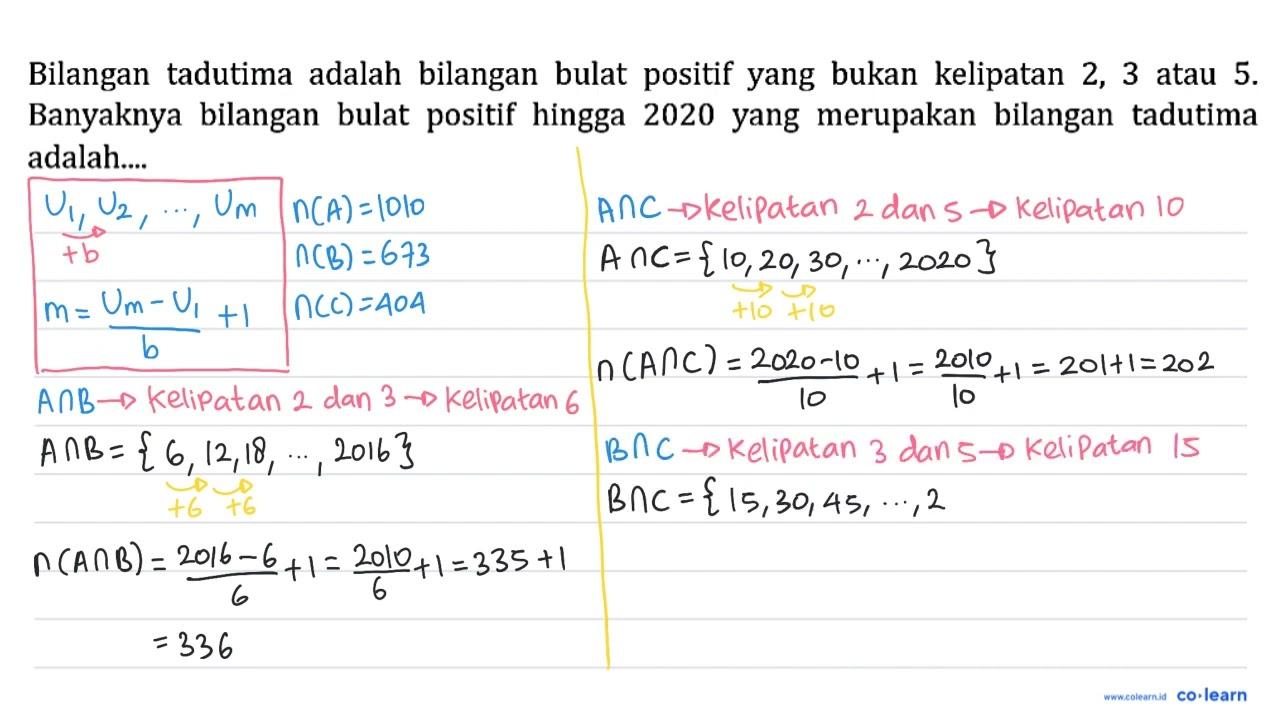 Bilangan tadutima adalah bilangan bulat positif yang bukan kelipatan 2, 3 atau 5.
Banyaknya bilangan bulat positif hingga 2020 yang merupakan bilangan tadutima
adalah....
U₁, U₂, ..., Um
+b
m = (Um - U₁)/b + 1
n(A) = 1010
n(B) = 673
n(C) = 404
A∩B → kelipatan 2 dan 3 → kelipatan 6
A∩B = { 6, 12, 18, ..., 2016 }
+6 +6
n(A∩B) = (2016 - 6)/6 + 1 = 2010/6 + 1 = 335 + 1
= 336
A∩C → kelipatan 2 dan 5 → kelipatan 10
A∩C = { 10, 20, 30, ..., 2020 }
+10 +10
n(A∩C) = (2020 - 10)/10 + 1 = 2010/10 + 1 = 201 + 1 = 202
B∩C → kelipatan 3 dan 5 → kelipatan 15
B∩C = { 15, 30, 45, ..., 2
www.colearn.id co·learn